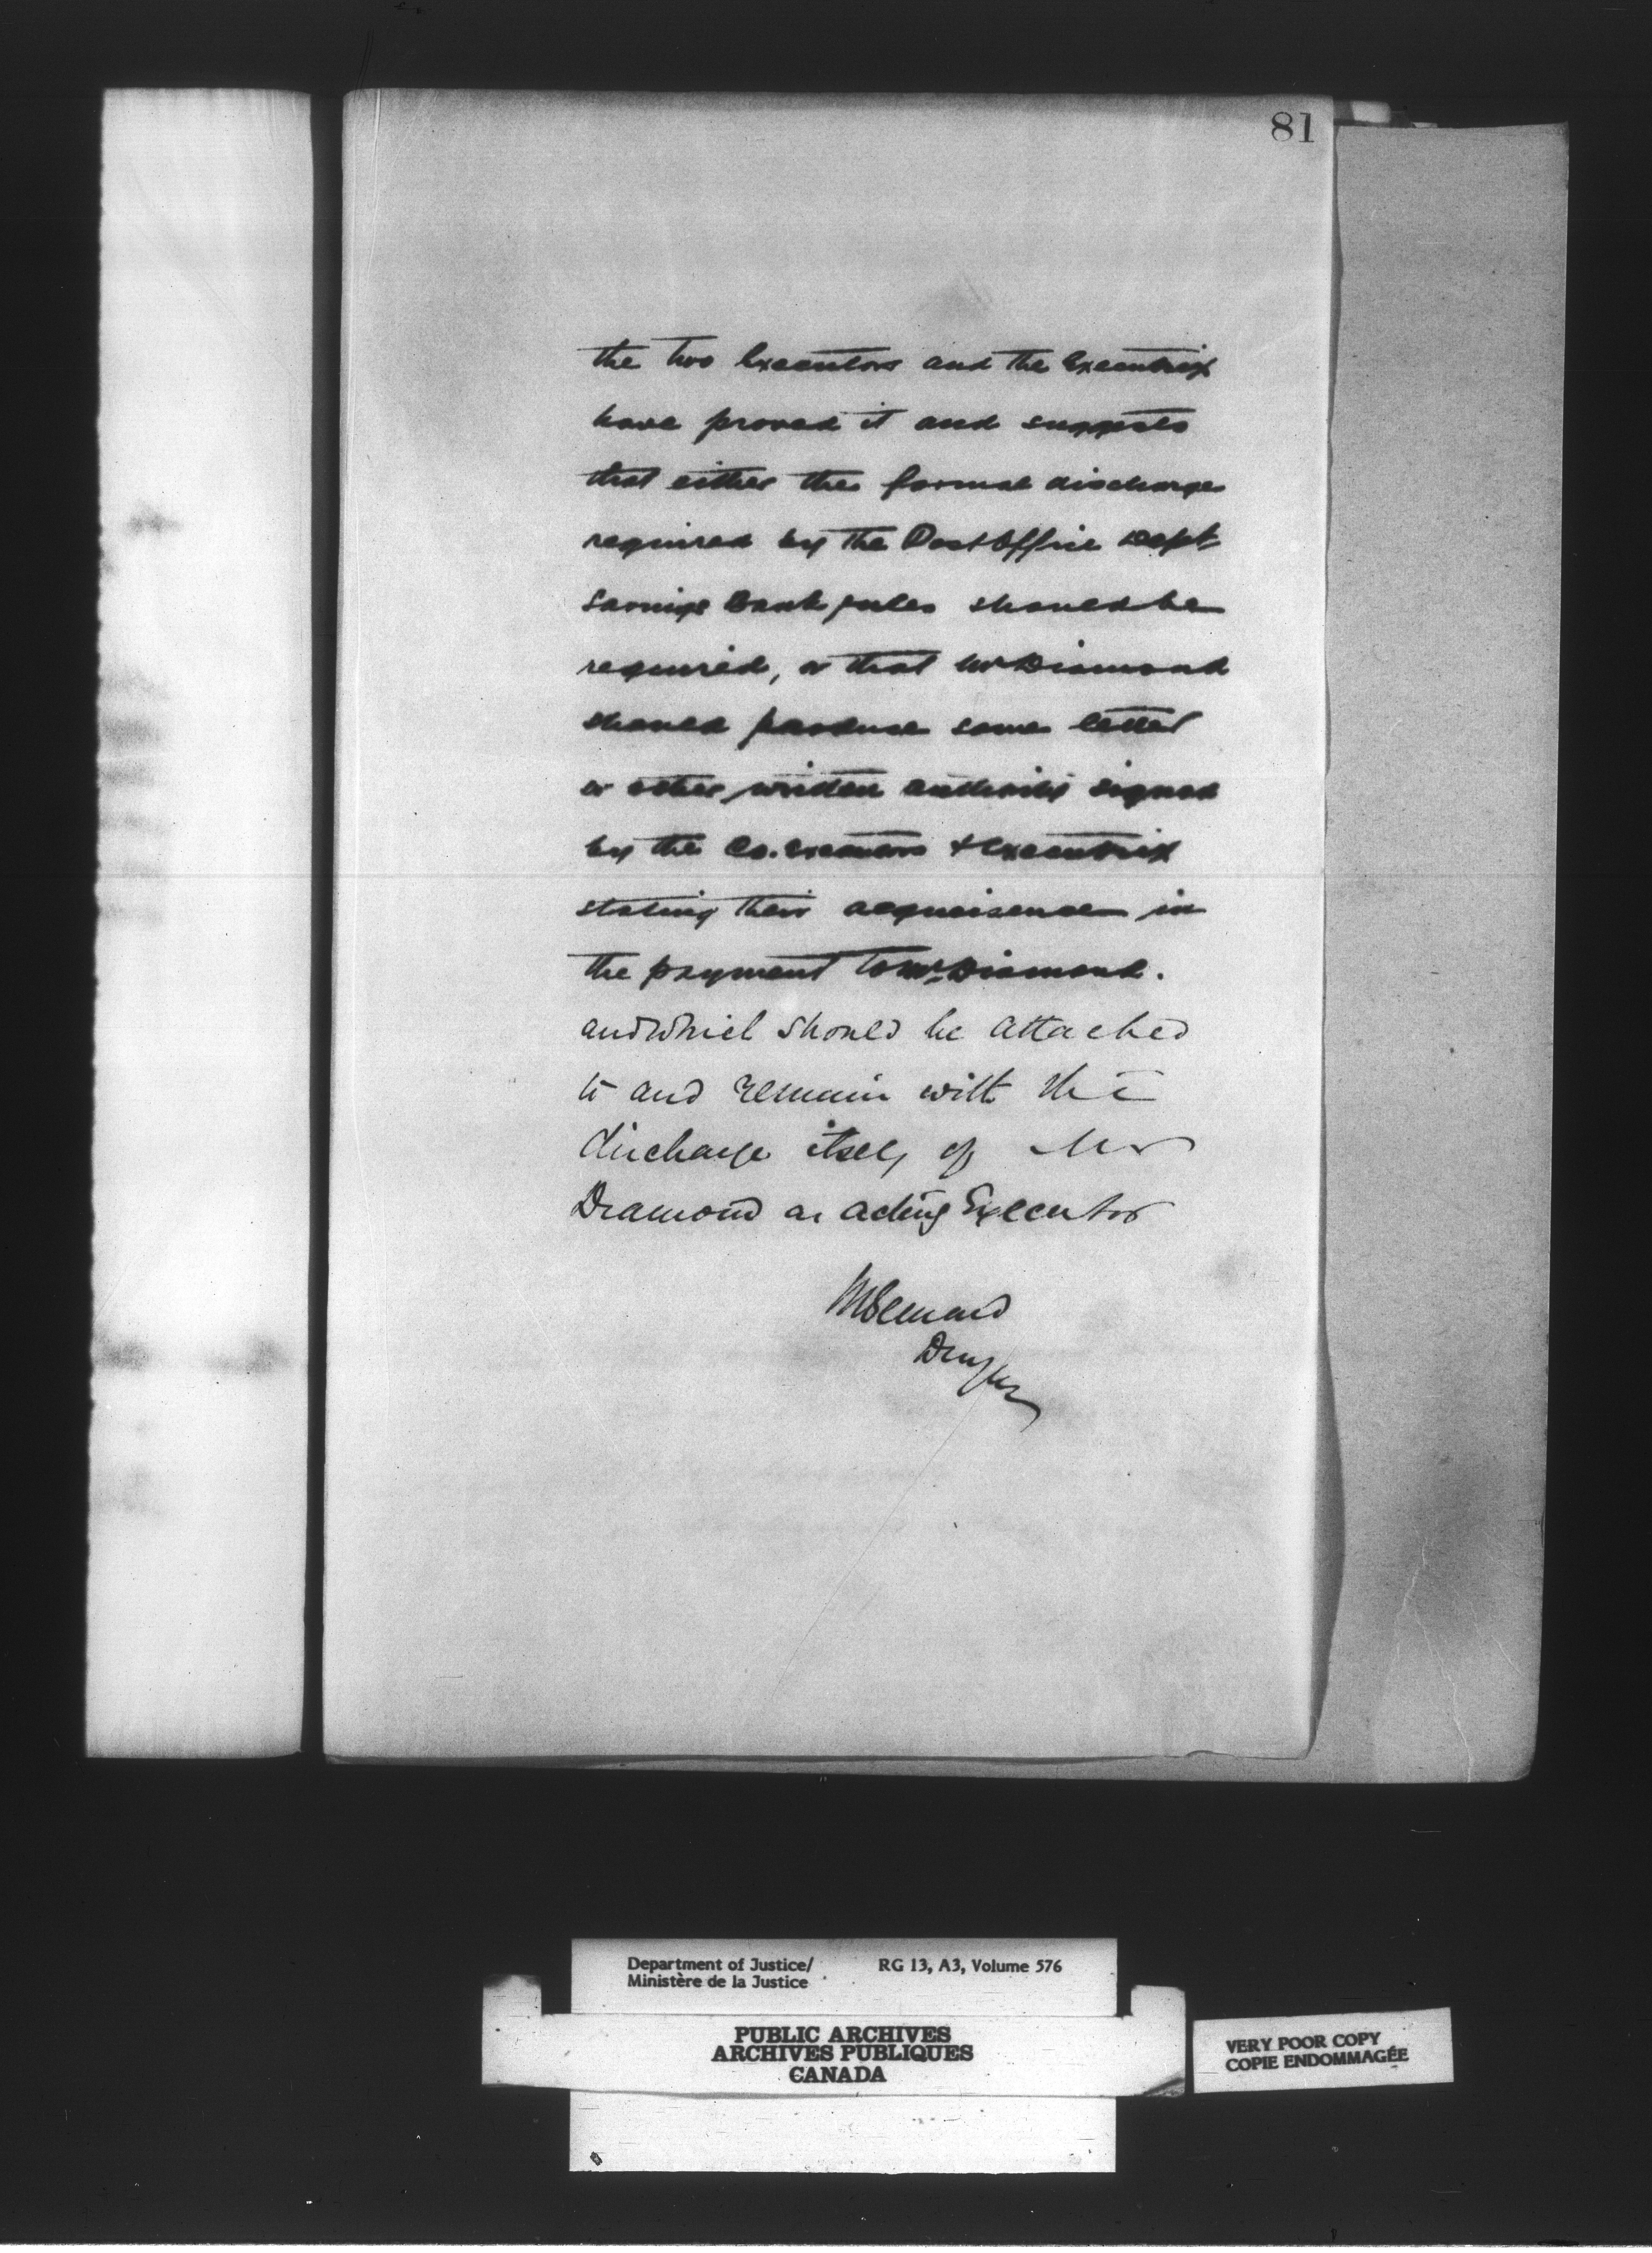 81
the two Executors and the Executrix
have proved it and suggests
that either the formal discharge
required by the Post Office Dept
Savings Bank rules should be
required, or that Mr Diamond
should produce some letter
or other written authority signed
by the Co. Executors & Executrix
stating their acquiescence in
the payment to Mr Diamond.
and which should be attached
to and remain with the
discharge itself of Mr
Diamond as acting Executor
HBernard
Department of Justice/ RG 13, A3, Volume 576
Ministère de la Justice
PUBLIC ARCHIVES
ARCHIVES PUBLIQUES
CANADA
VERY POOR COPY
COPIE ENDOMMAGÉE